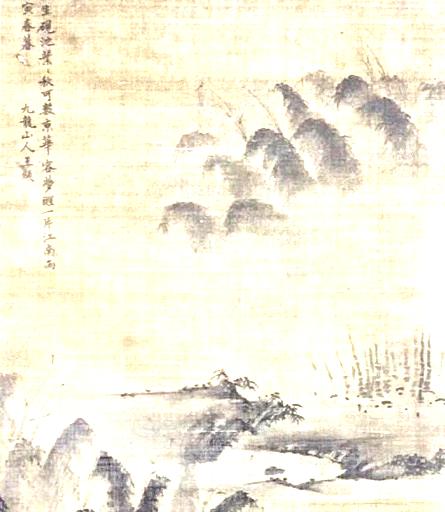 生硯池葉〻秋可數京華客夢醒一片江南雨
寅春暮 九龍山人王紱